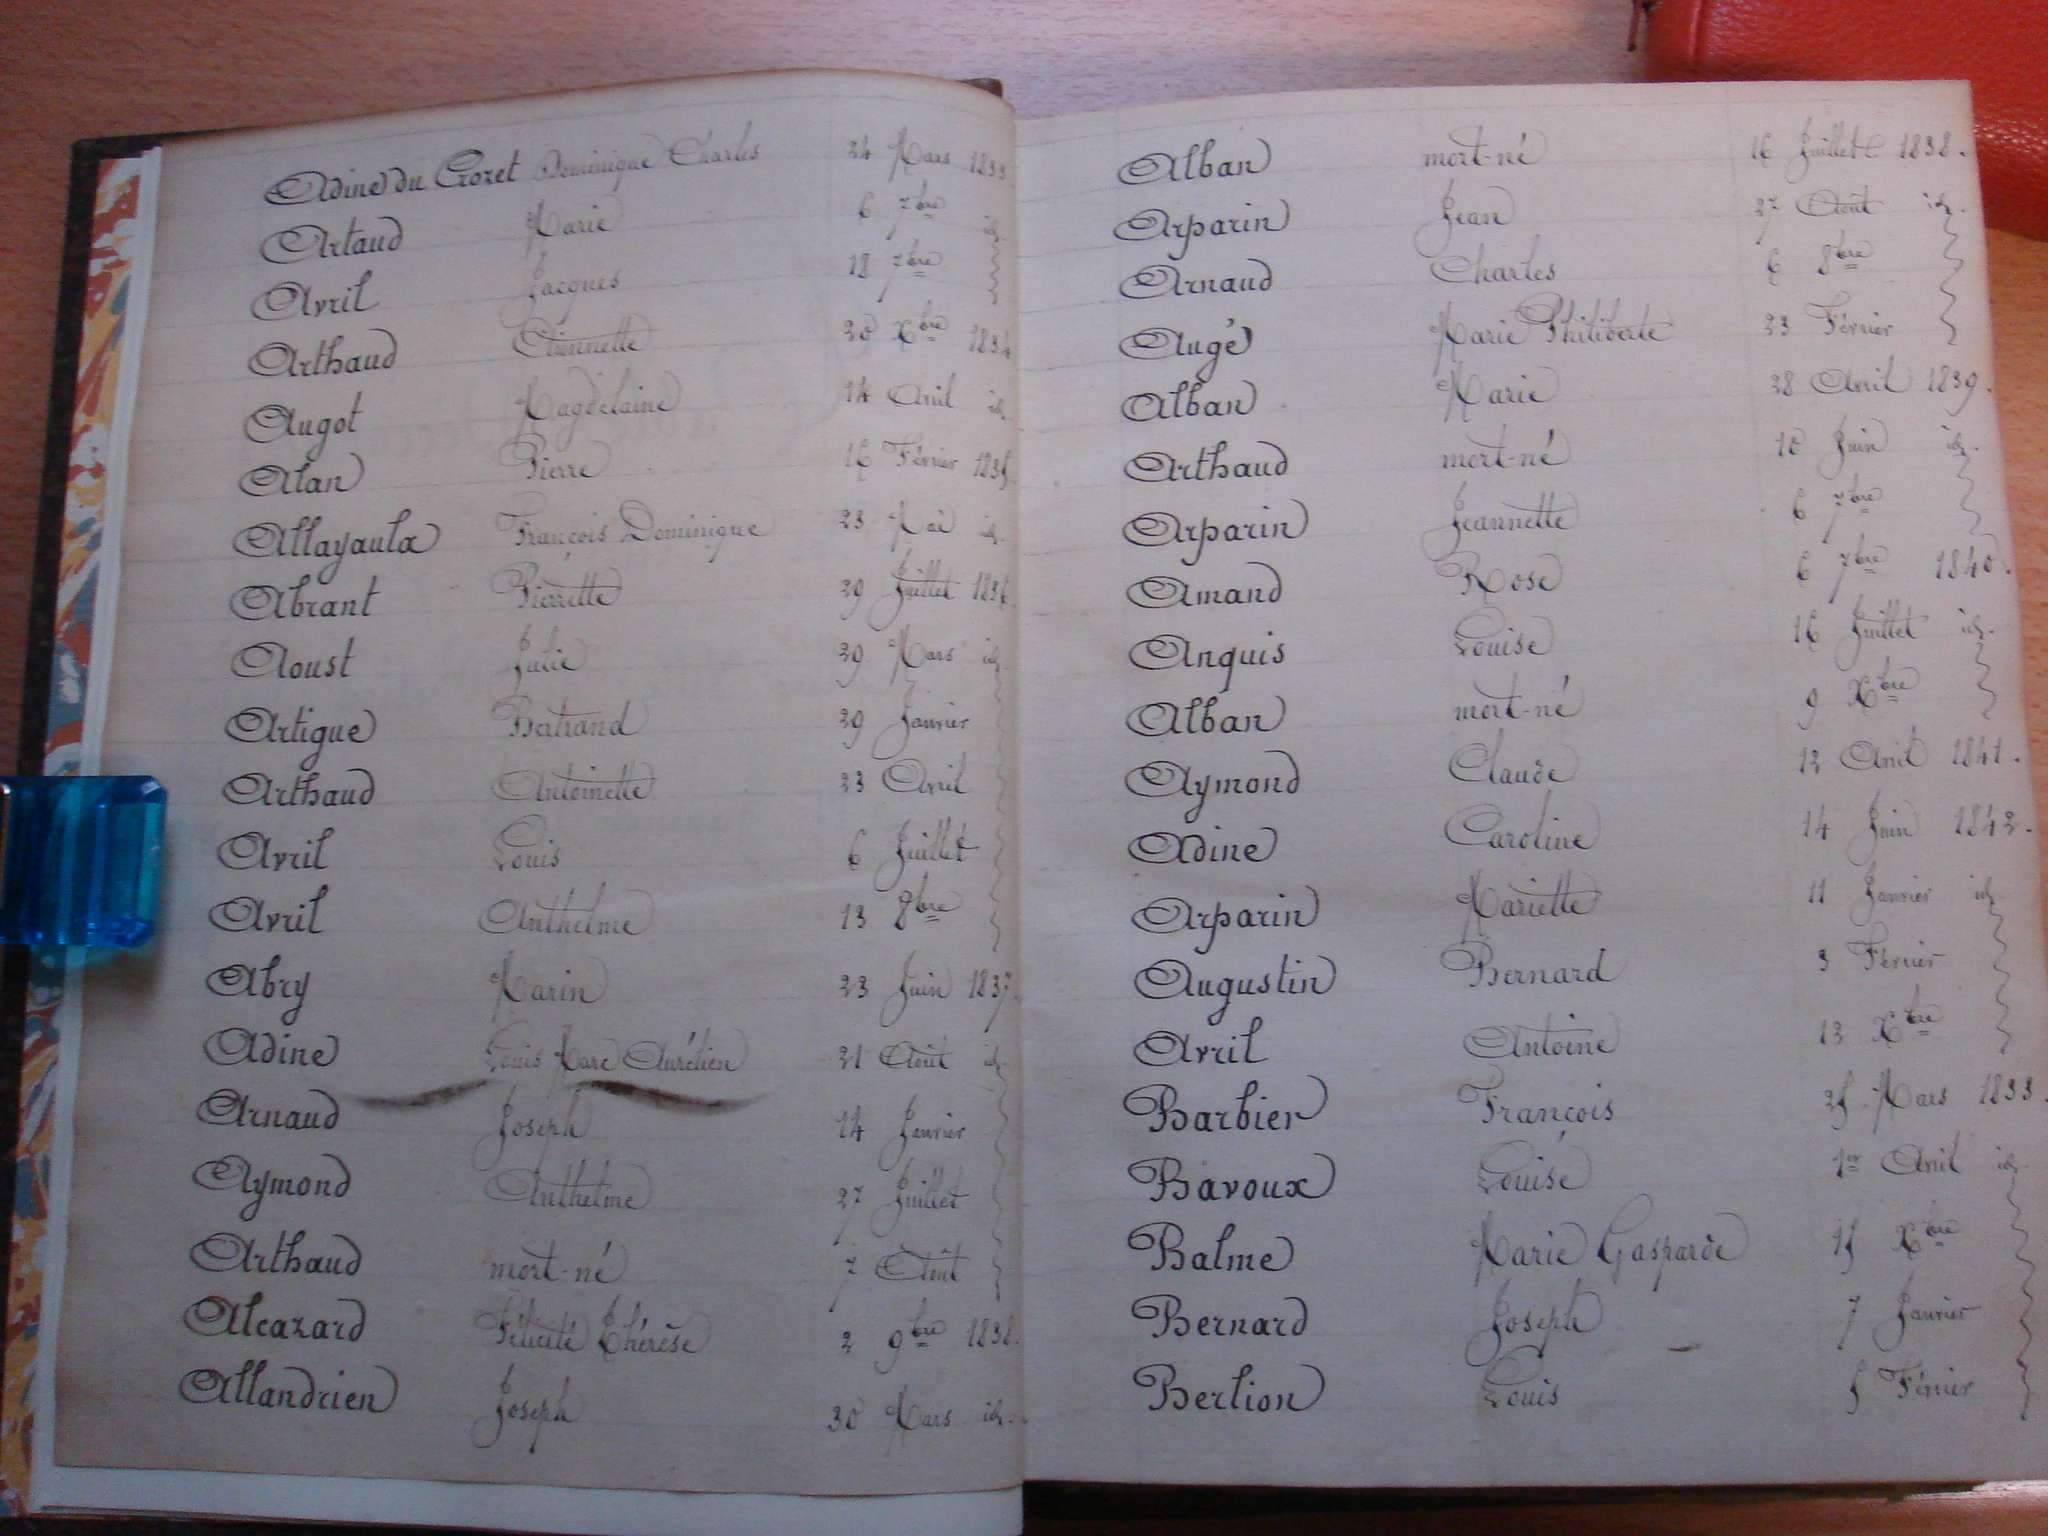 Adine du Crozet Dominique Charles 24 Mars 1833
Artaud Marie 6 7bre id.
Avril Jacques 18 7bre
Arthaud Etiennette 20 Xbre 1834
Augot Magdelaine 14 Avril id.
Alan Pierre 16 Février 1835
Allayaula François Dominique 23 Mai id.
Abrant Pierrette 29 Juillet 1836
Aoust Julie 29 Mars id.
Artigue Bertrand 29 Janvier
Arthaud Antoinette 23 Avril
Avril Louis 6 Juillet
Avril Anthelme 13 8bre
Abry Marin 23 Juin 1837.
Adine Louis Marc Aurélien 21 Août id.
Arnaud Joseph 14 Janvier
Aymond Anthelme 27 Juillet
Arthaud mort-né 7 Août
Alcazard Félicité Thérèse 2 9bre 1838.
Allandrien Joseph 30 Mars id.
Alban mort-né 16 Juillet 1838.
Arparin Jean 27 Août id.
Arnaud Charles 6 8bre
Augé Marie Philiberte 23 Février
Alban Marie 28 Avril 1839.
Arthaud mort-né 10 Juin id.
Arparin Jeannette 6 7bre
Amand Rose 6 7bre 1840.
Anquis Louise 16 Juillet id.
Alban mort-né 9 Xbre
Aymond Claude 12 Avril 1841.
Adine Caroline 14 Juin 1842.
Arparin Mariette 11 Janvier id.
Augustin Bernard 3 Février
Avril Antoine 12 Xbre
Barbier François 25 Mars 1833.
Bavoux Louise 1er Avril id.
Balme Marie Gasparde 15 Xbre
Bernard Joseph 7 Janvier
Berlion Louis 5 Février